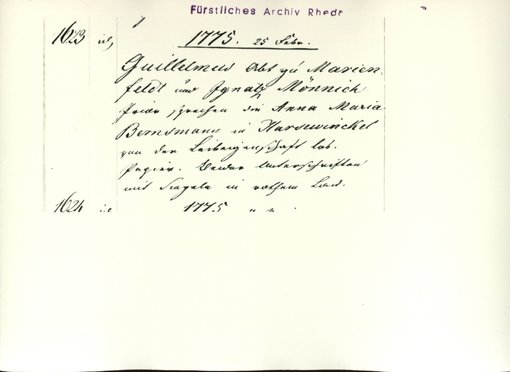 Fürstliches Archiv Rheda
1623 1775. 25 Febr.
Guillelmus Abt zu Marien
feldt und Ignatz Mönnich
Prior sprechen die Anna Maria
Bernsmann in Harsewinckel
von der Leibeigenschaft los.
Papier. Beider Unterschriften
mit Siegeln in rothem Lack.
1624 1775